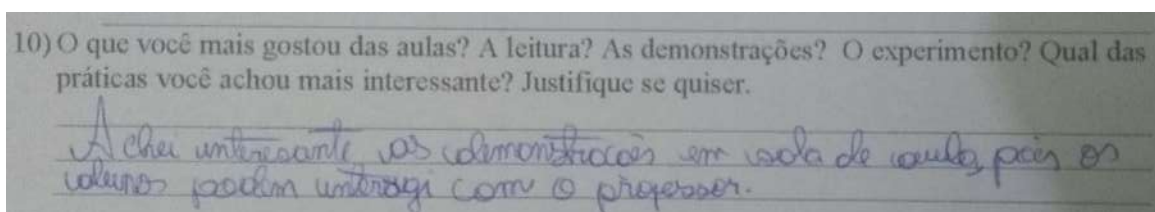 10) O que você mais gostou das aulas? A leitura? As demonstrações? O experimento? Qual das
práticas você achou mais interessante? Justifique se quiser.
Achei interesante as demonstracões em sala de aula, pois os
alunos podem interagi com o professor.